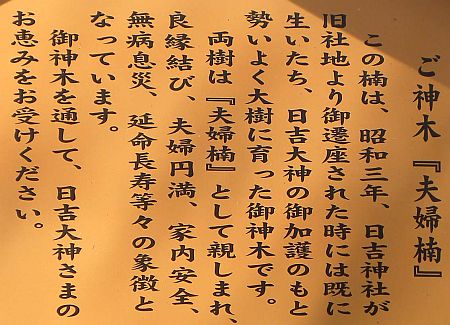 ご神木『夫婦楠』
この楠は、昭和三年、日吉神社が
旧社地より御遷座された時には既に
生いたち、日吉大神の御加護のもと
勢いよく大樹に育った御神木です。
両樹は『夫婦楠』として親しまれ、
良縁結び、夫婦円満、家内安全、
無病息災、延命長寿等々の象徴と
なっています。
御神木を通して、日吉大神さまの
お恵みをお受けください。